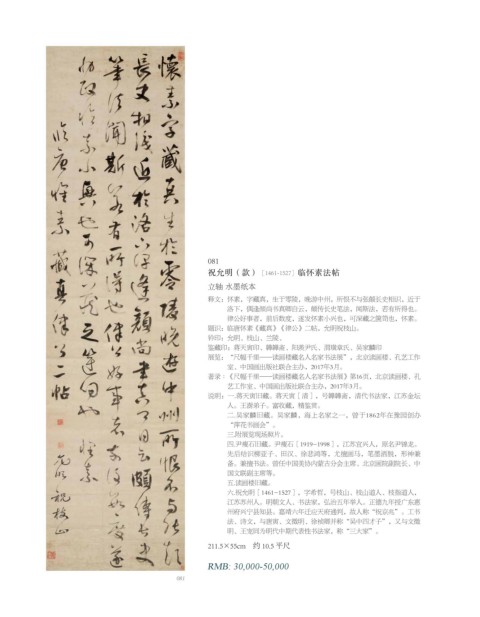 懷素字藏真生於零陵晚遊中州所恨不與張顛
長史相識近於洛下偶逢顏尚書真卿自云頗傳長史
筆法聞斯八法若有所得也律公好事者前後數度遂
發懷素小興也可深藏之篋笥也懷素
臨唐懷素藏真律公二帖
允明 祝枝山
081
081
祝允明（款）［1461-1527］临怀素法帖
立轴 水墨纸本
释文：怀素，字藏真，生于零陵，晚游中州，所恨不与张颠长史相识。近于
洛下，偶逢颜尚书真卿自云，颇传长史笔法，闻斯法，若有所得也。
律公好事者，前后数度，遂发怀素小兴也，可深藏之箧笥也，怀素。
题识：临唐怀素《藏真》《律公》二帖，允明祝枝山。
钤印：允明、枝山、兰陵、
鉴藏印：蒋天寅印、
展览：“尺幅千里——读画楼藏名人名家书法展”，北京读画楼、孔艺工作
室、中国画出版社联合主办，2017年3月。
著录：《尺幅千里——读画楼藏名人名家书法展》第16页，北京读画楼、孔
艺工作室、中国画出版社联合主办，2017年3月。
说明：一.蒋天寅旧藏。蒋天寅［清］，清代书法家，江苏金坛
人。王澍弟子。富收藏，精鉴赏。
二.吴家麟旧藏。吴家麟，海上名家之一，曾于1862年在豫园创办
“萍花书画会”。
三.附展览现场照片。
四.尹瘦石旧藏。尹瘦石［1919-1998］，江苏宜兴人，原名尹锦龙。
先后结识柳亚子、田汉、徐悲鸿等。尤擅画马，笔墨洒脱，形神兼
备；兼擅书法。曾任中国美协内蒙古分会主席、北京画院副院长、中
国文联副主席等。
五.读画楼旧藏。
六.祝允明［1461-1527］，字希哲，号枝山、枝山道人、枝指道人，
江苏苏州人。明朝文人、书法家。弘治五年举人，正德九年授广东惠
州府兴宁县知县、嘉靖六年迁应天府通判，故人称“祝京兆”。工书
法、诗文，与唐寅、文徵明、徐祯卿并称“吴中四才子”，又与文徵
明、王宠同为明代中期代表性书法家，称“三大家”。
211.5×55cm 约 10.5 平尺
RMB: 30,000-50,000